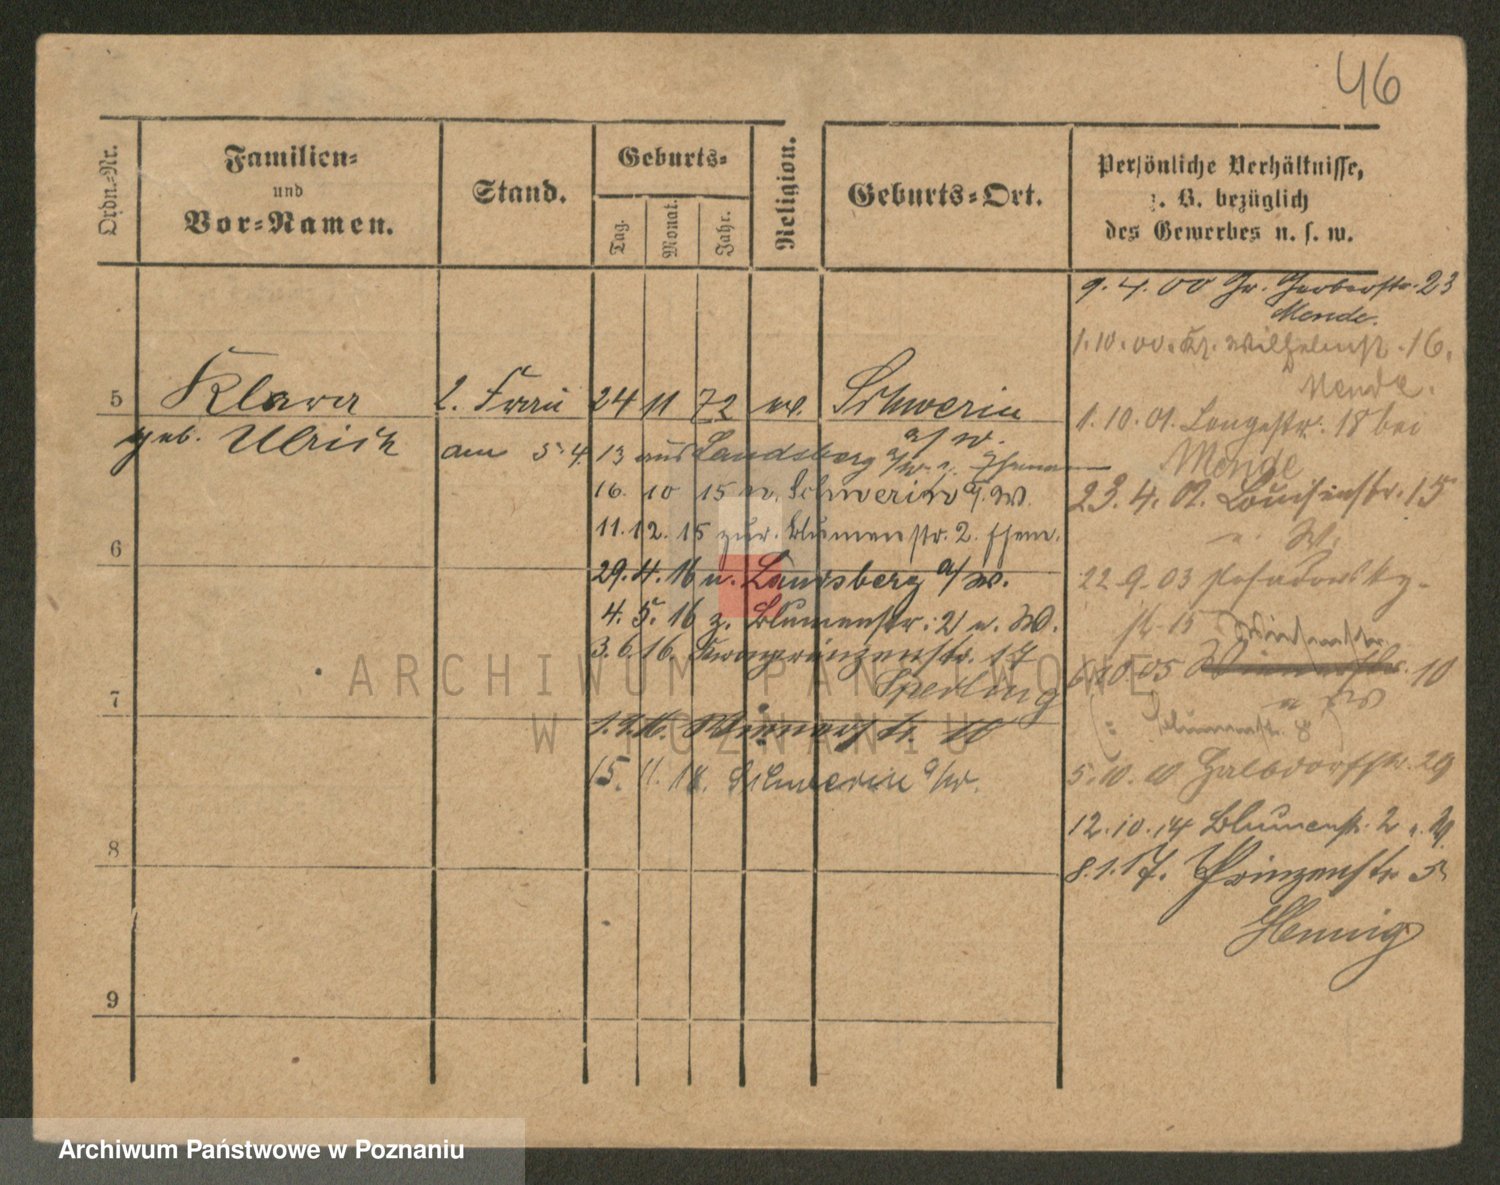 46
Ordn.-Nr.
Familien-
und
Vor-Namen.
Stand.
Geburts-
Tag.
Monat.
Jahr.
Religion.
Geburts-Ort.
Persönliche Verhältnisse,
z. B. bezüglich
des Gewerbes u. s. w.
9. 4. 00 Gr. Gerberstr. 23
Mende.
1. 10. 00. Kl. Wilhelmst. 16.
Mende.
5 Klara 2. Frau 24 11 72 Schwerin
a/W.
1. 10. 01. Langestr. 18 bei
Mende
geb. Ulrich am 5 4. 13 aus Landsberg a/W.
16. 10 15 n. Schwerin a. W.
23. 4. 02. Louisenstr. 15
u. W.
11. 12. 15 zur. Blumenstr. 2.
6
29. 4. 16 n. Landsberg a/W.
22. 9. 03 Posadowsky-
str. 15
4. 5. 16 z. Blumenstr. 2 u. W.
3. 6. 16. Kronprinzenstr. 17
Sperling
10. 05 10
u W
7
Blumenstr. 8
15. 11. 18. Schwerin a/W.
5. 10. 10 Halbdorfstr. 29
12. 10. 14 Blumenstr. 2 u. W.
8
8. 1. 17. Prinzenstr. 5
Hennig
9
ARCHIWUM PAŃSTWOWE
W POZNANIU
Archiwum Państwowe w Poznaniu